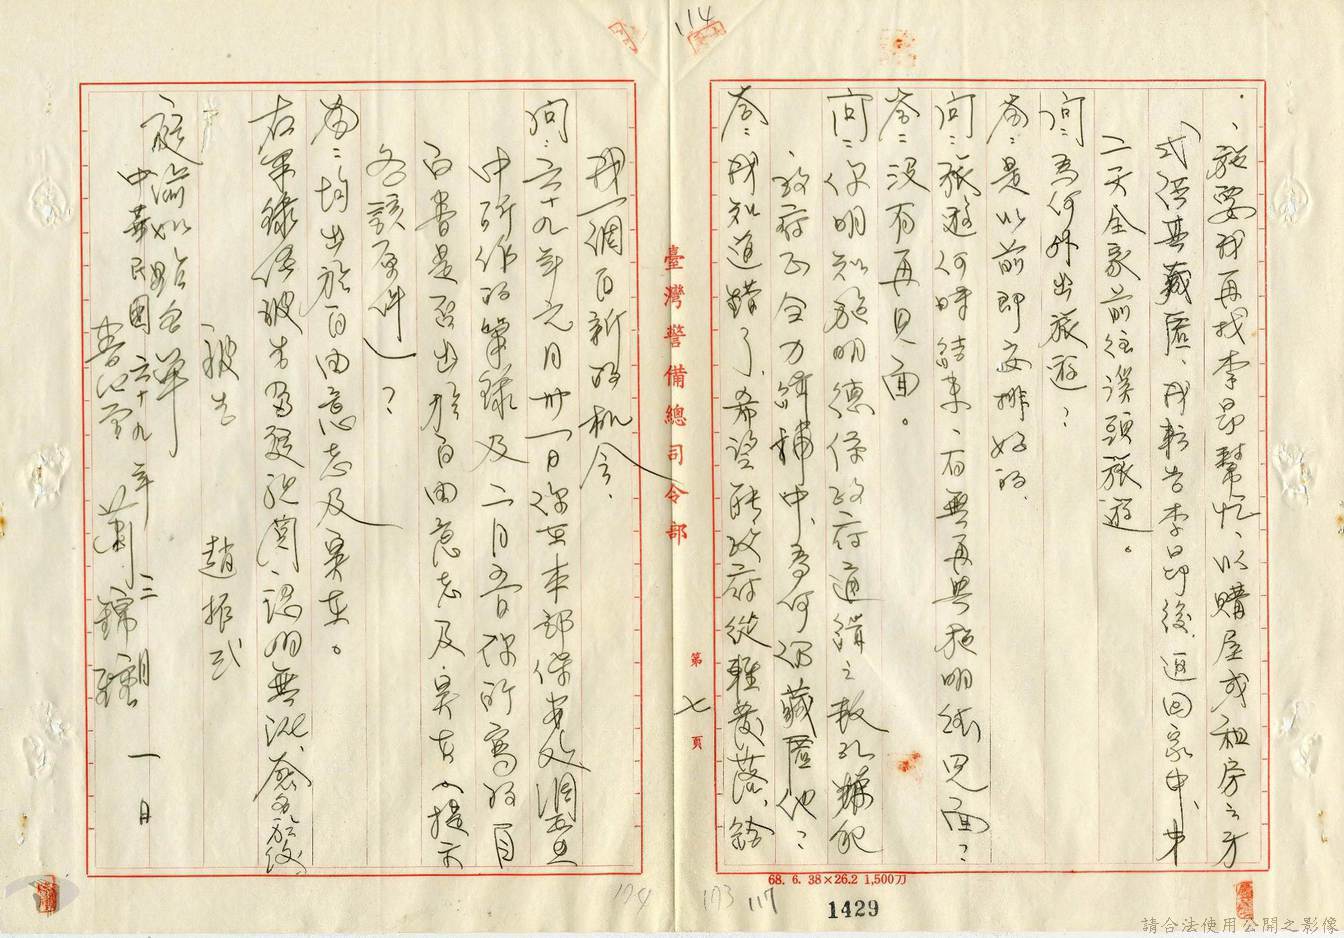 114
、施要我再找李昂幫忙、以購屋或租房之方
式供其藏匿、我轉告李昂後、返回家中、第
二天全家前往溪頭旅遊。
問：為何外出旅遊？
答：是以前即安排好的、
問：旅遊何時結束、有無再與施明德見面？
答：沒有再見面。
問：你明知施明德係政府通緝之叛亂嫌犯
、政府正全力緝捕中、為何仍藏匿他？
答：我知道錯了、希望能政府從輕發落、給
臺灣警備總司令部
第七頁
我一個自新的机会、
問：六十九年元月卅一日你在本部保安處調查
中所作的筆錄及二月五日你所寫的自
白書是否出於自由意志及实在（提示
各該原件）？
答：均出於自由意志及实在。
右筆錄經被告閱認明無訛、簽名於後
被告 趙振弍
庭諭如給名單
中華民國六十九年三月一日
書記官 蕭錦鍾
68. 6. 38×26.2 1,500刀
174
173
117
1429
請合法使用公開之影像